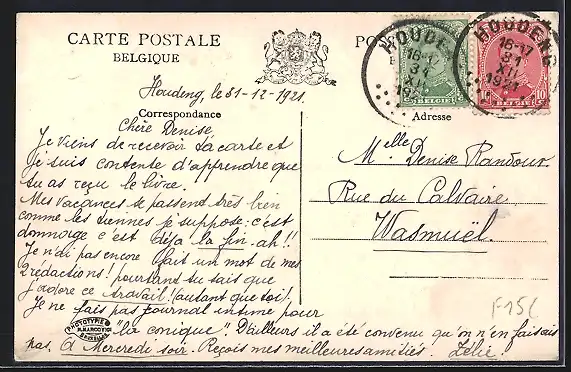 CARTE POSTALE
BELGIQUE
PO
HOUDENG
16-17
31
XII
1921
HOUDENG
16-17
31
XII
1921
BELGIE
BELGIE 10
Houdeng, le 31-12-1921.
Correspondance
Adresse
Chère Denise,
Je viens de recevoir ta carte et
je suis contente d'apprendre que
tu as reçu le livre.
Mes vacances se passent très bien
comme les tiennes je suppose: c'est
dommage c'est déjà la fin ah!!
Je n'ai pas encore fait un mot de mes
2 rédactions! pourtant tu sais que
j'adore ce travail! (autant que toi).
Je ne fais pas journal intime pour
"la conique". D'ailleurs il a été convenu qu'on n'en faisait
pas. à Mercredi soir. Reçois mes meilleures amitiés. Zélie!
Melle Denise Randour
Rue du Calvaire
Wasmuël.
PHOTOTYPIE
A. MARCOVICI
BRUXELLES
F15C